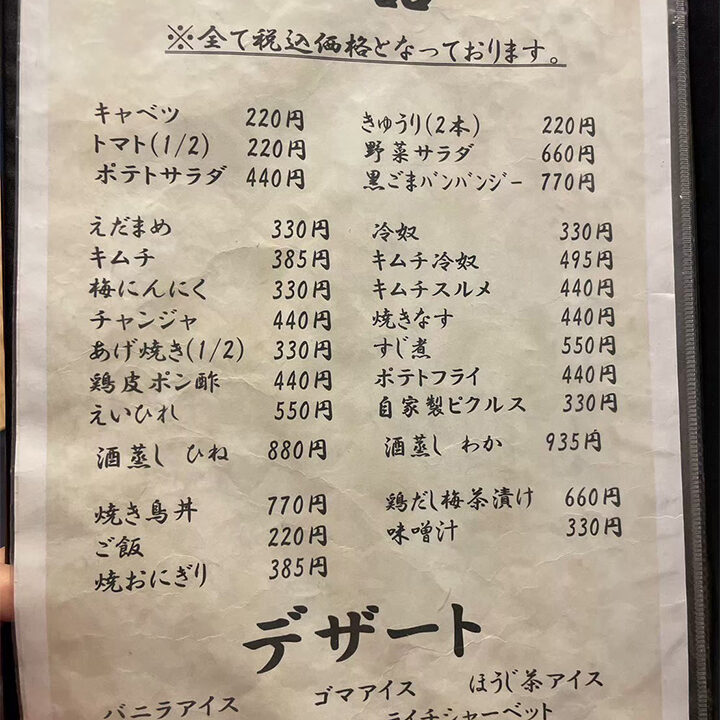 ※全て税込価格となっております。
キャベツ 220円
トマト(1/2) 220円
ポテトサラダ 440円
きゅうり(2本) 220円
野菜サラダ 660円
黒ごまバンバンジー 770円
えだまめ 330円
キムチ 385円
梅にんにく 330円
チャンジャ 440円
あげ焼き(1/2) 330円
鶏皮ポン酢 440円
えいひれ 550円
酒蒸し ひね 880円
冷奴 330円
キムチ冷奴 495円
キムチスルメ 440円
焼きなす 440円
すじ煮 550円
ポテトフライ 440円
自家製ピクルス 330円
酒蒸し わか 935円
焼き鳥丼 770円
ご飯 220円
焼おにぎり 385円
鶏だし梅茶漬け 660円
味噌汁 330円
デザート
バニラアイス
ゴマアイス
ほうじ茶アイス
ライチシャーベット